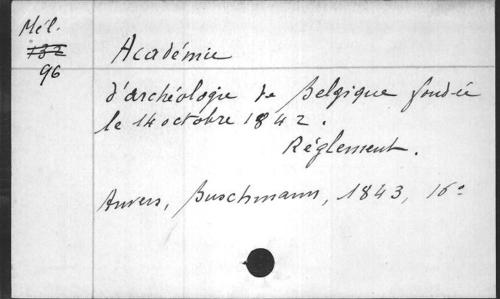 Mél.
132
96
Académie
d'archéologie de Belgique fondée
le 14 octobre 1842.
Réglement.
Anvers, Buschmann, 1843, 16°